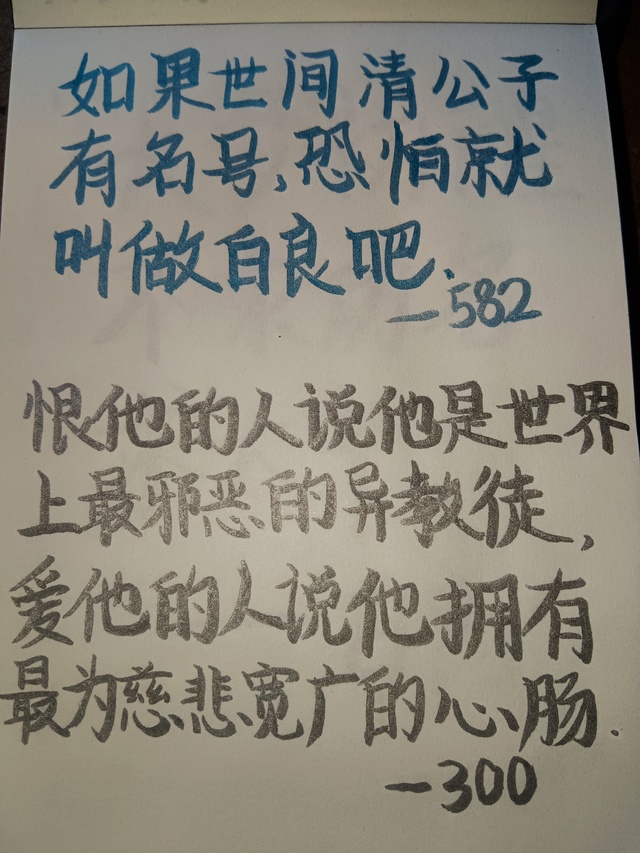 如果世间清公子
有名号,恐怕就
叫做白良吧.
—582
恨他的人说他是世界
上最邪恶的异教徒,
爱他的人说他拥有
最为慈悲宽广的心肠.
—300